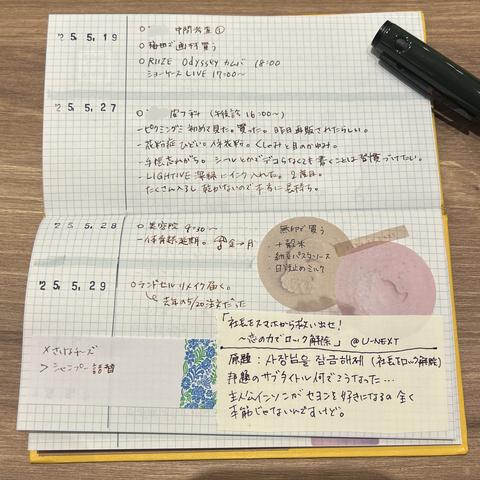 '25. 5. 19
○ 中間考査①
○ 梅田で画材買う
○ RIIZE Odyssey カムバ 18:00
ショーケースLIVE 17:00〜
'25. 5. 27
○ 皮フ科 (午後診 16:00〜)
-ピクミングミ 初めて見た。買った。昨日再販されたらしい。
-花粉症 ひどい。イネ花粉。くしゃみと目のかゆみ。
-手帳忘れがち。シールとかでデコらなくても書くことは習慣づけたい。
-LIGHTIVE 翠緑にインク入れた。2度目。
たくさん入るし乾かないので本当に長持ち。
'25. 5. 28
○ 美容院 9:30〜
-体育祭延期。 金→月
無印で買う
十穀米
納豆パスタソース
日焼止めミルク
'25. 5. 29
○ランドセルリメイク届く。
↳ 去年の5/20注文だった
×さけるチーズ
>シャンプー 詰替
「社長をスマホから救い出せ!
〜恋の力でロック解除」 @U-NEXT
原題:사장님을 잠금해제 (社長をロック解除)
邦題のサブタイトル何でこうなった…
主人公インソンがセヨンを好きになるの全く
本筋じゃないんですけど。